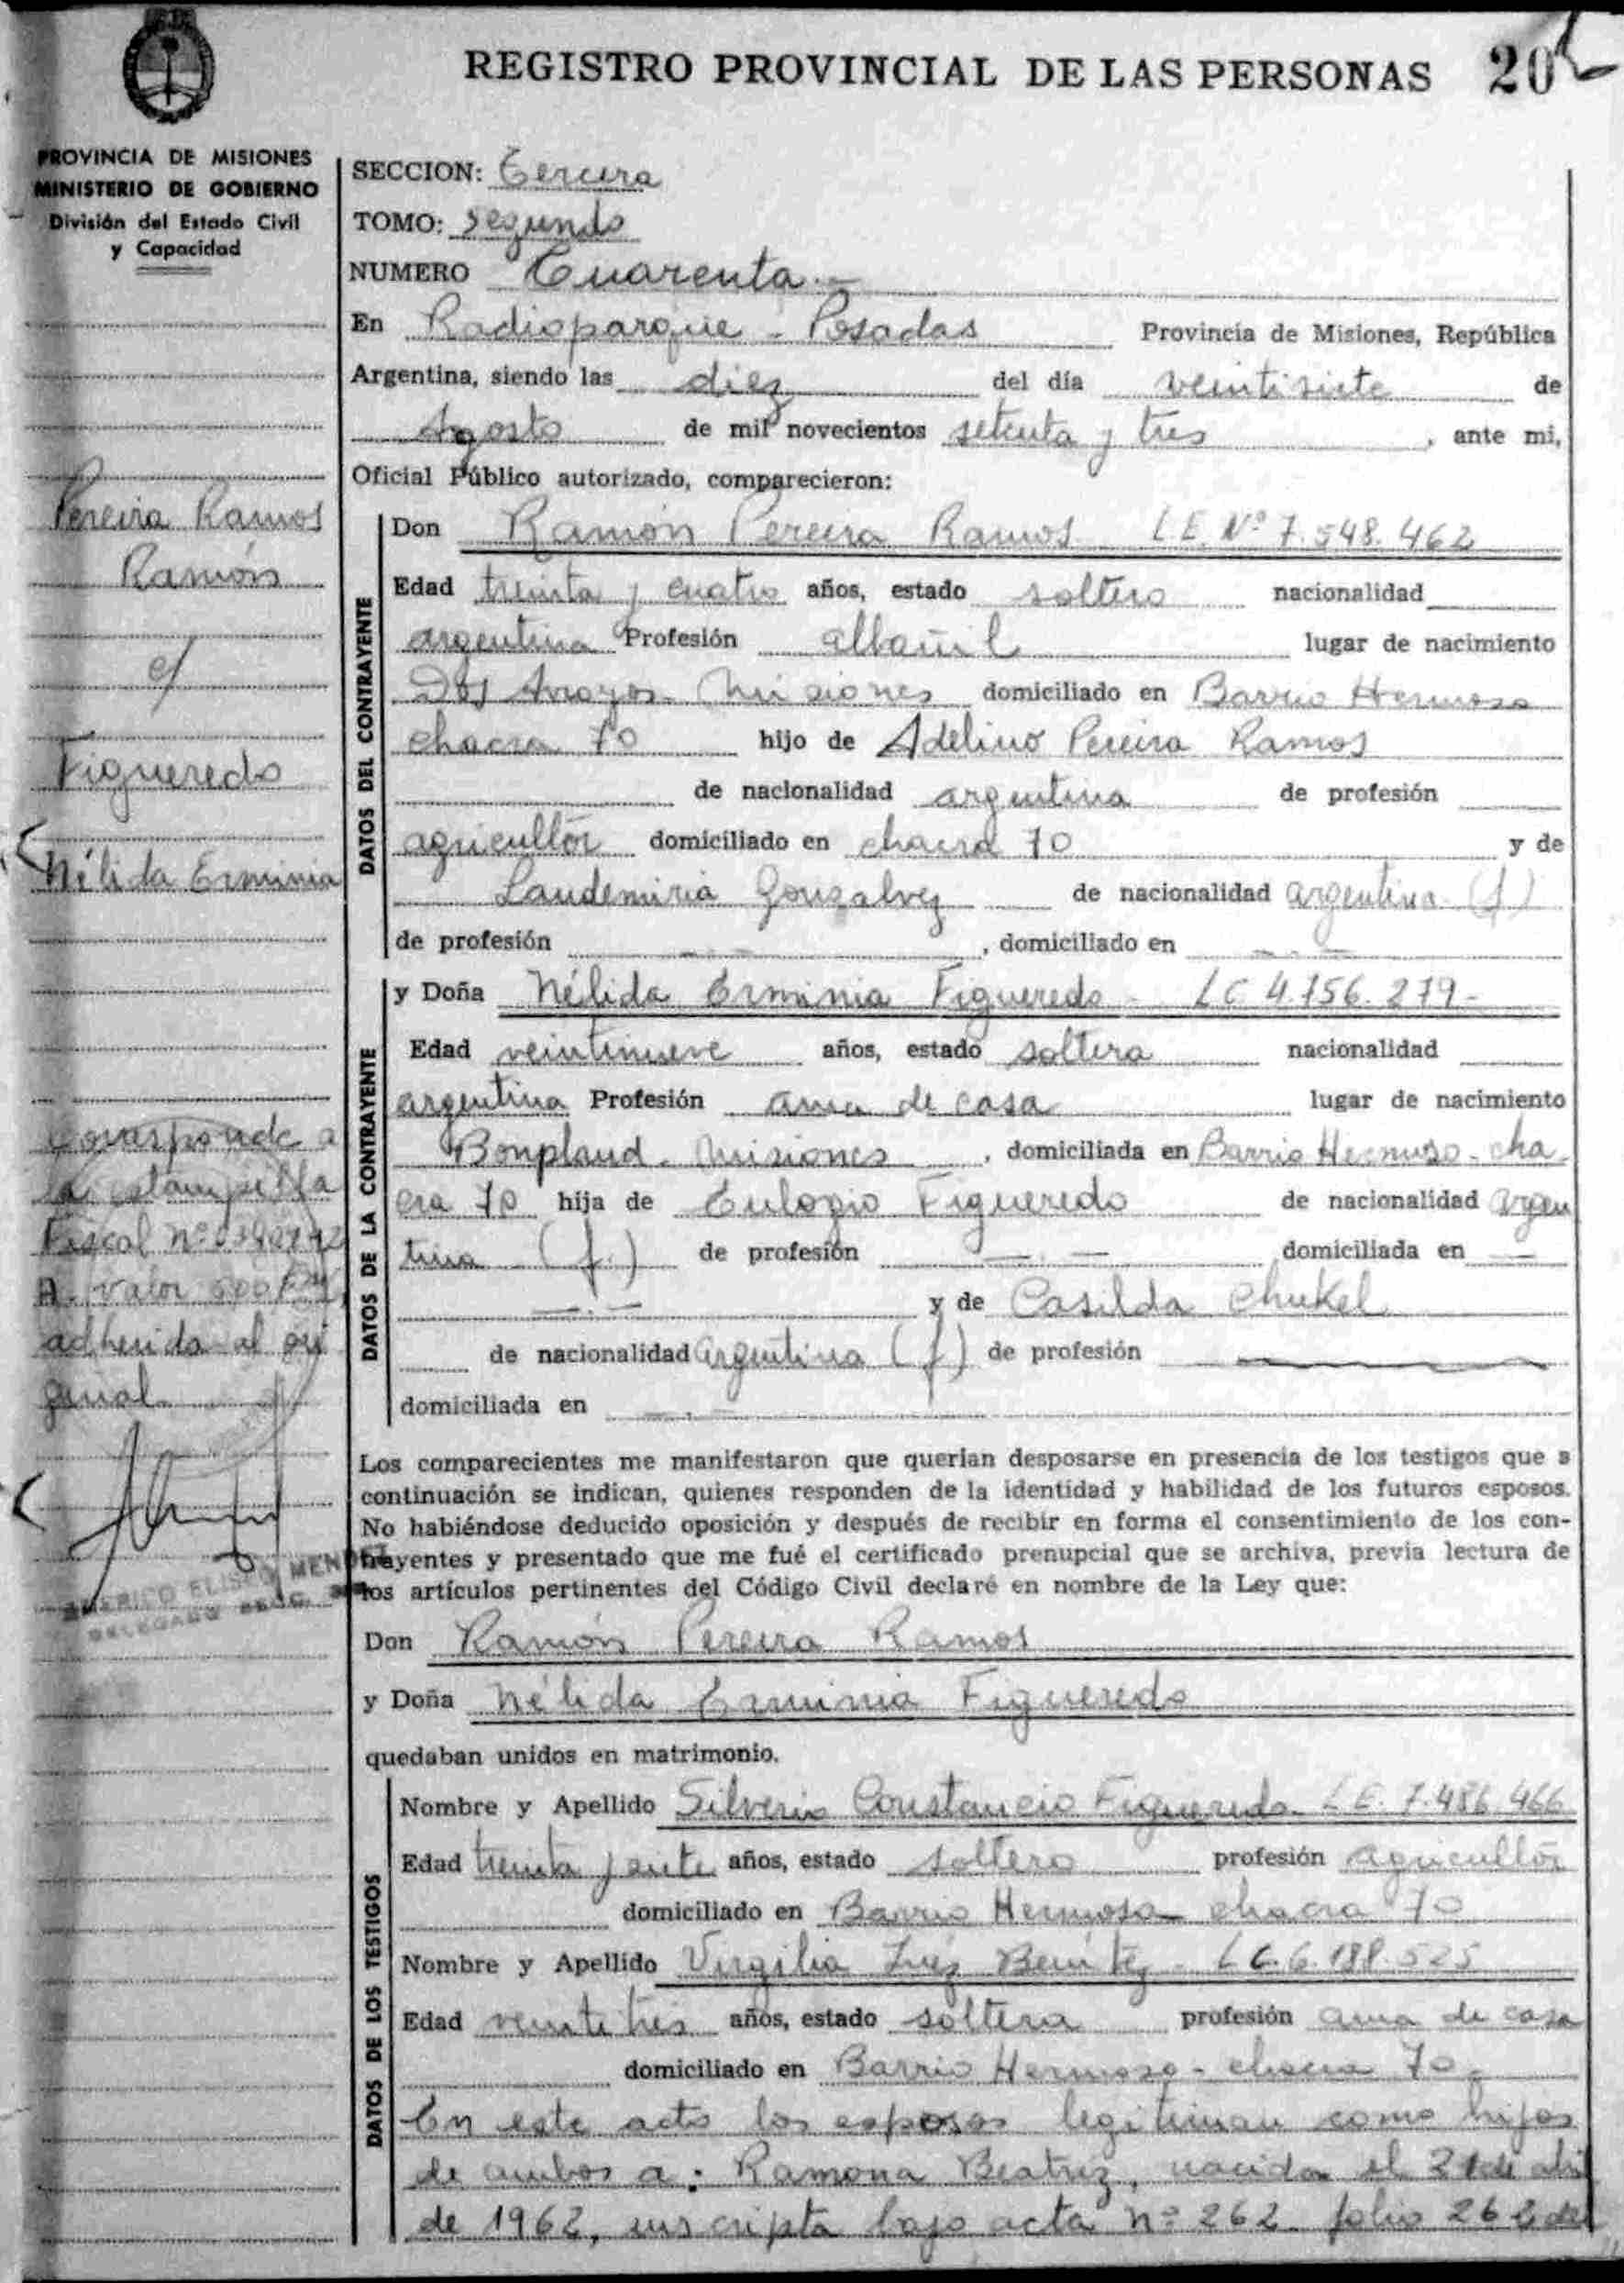 REGISTRO PROVINCIAL DE LAS PERSONAS 20
PROVINCIA DE MISIONES
MINISTERIO DE GOBIERNO
División del Estado Civil
y Capacidad
Pereira Ramos
Ramón
c/
Figueredo
Nélida Erminia
Corresponde a
la estampilla
Fiscal nº
A. valor 600
adherida al ori
ginal.
AMERICO ELISEO MENDEZ
DELEGADO SECC.
SECCION: Tercera
TOMO: Segundo
NUMERO Cuarenta.-
En Radioparque - Posadas Provincia de Misiones, República
Argentina, siendo las diez del día veintisiete de
Agosto de mil novecientos setenta y tres, ante mi,
Oficial Público autorizado, comparecieron:
DATOS DEL CONTRAYENTE
Don Ramón Pereira Ramos L E. Nº 7.548.462
Edad treinta y cuatro años, estado soltero nacionalidad
argentina Profesión albañil lugar de nacimiento
Dos Arroyos. Misiones domiciliado en Barrio Hermoso
chacra 70 hijo de Adelino Pereira Ramos
de nacionalidad argentina de profesión
agricultor domiciliado en chacra 70 y de
Laudemiria Gonzalvez de nacionalidad argentina (f)
de profesión — . — , domiciliado en — . —
DATOS DE LA CONTRAYENTE
y Doña Nélida Erminia Figueredo - LC 4.756.279-
Edad veintinueve años, estado soltera nacionalidad
argentina Profesión ama de casa lugar de nacimiento
Bonpland. Misiones, domiciliada en Barrio Hermoso - cha
cra 70 hija de Eulogio Figueredo de nacionalidad argen
tina (f.) de profesión — . — domiciliada en —
— . — y de Casilda Chukel
de nacionalidad argentina (f) de profesión —
domiciliada en — . —
Los comparecientes me manifestaron que querian desposarse en presencia de los testigos que a
continuación se indican, quienes responden de la identidad y habilidad de los futuros esposos.
No habiéndose deducido oposición y después de recibir en forma el consentimiento de los con-
trayentes y presentado que me fué el certificado prenupcial que se archiva, previa lectura de
los artículos pertinentes del Código Civil declaré en nombre de la Ley que:
Don Ramón Pereira Ramos
y Doña Nélida Erminia Figueredo
quedaban unidos en matrimonio.
DATOS DE LOS TESTIGOS
Nombre y Apellido Silverio Constancio Figueredo. L E. 7.486.466
Edad treinta y siete años, estado soltero profesión agricultor
domiciliado en Barrio Hermoso chacra 70
Nombre y Apellido Virgilia Inéz Benítez - L C. 6.188.525
Edad veintitres años, estado soltera profesión ama de casa
domiciliado en Barrio Hermoso - chacra 70.
En este acto los esposos legitiman como hijos
de ambos a: Ramona Beatriz, nacida el 21 de abril
de 1962, inscripta bajo acta nº 262 folio 262 del